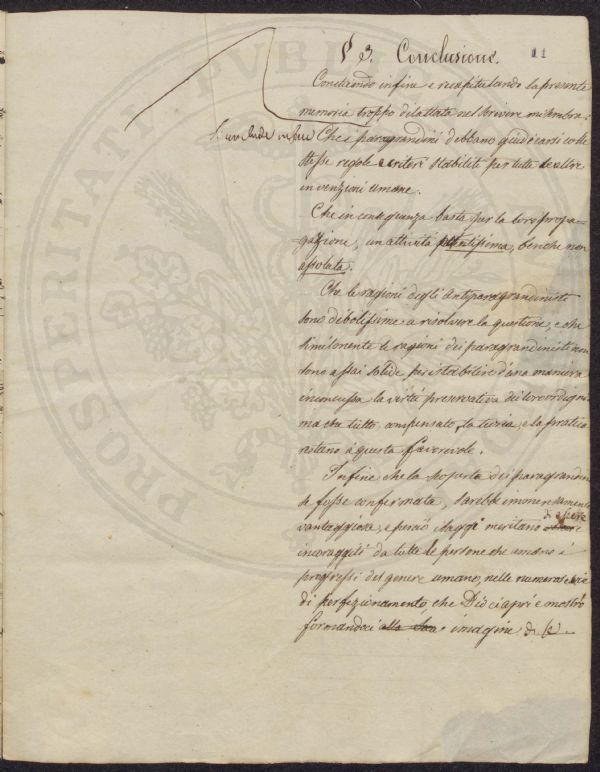 § 3. Conclusione.
11
Concludendo infine e recapitulando la presente
memoria troppo dilattata nel scrivere mi sembra
Si conclude infine Che i paragrandini debbano giudicarsi colle
stesse regole e criterî stabiliti per tutte le altre
invenzioni umane.
Che in conseguanza basta per la loro propa-
gazione, un attività potentissima, benche non
assoluta.
Che le ragioni degli Antiparagrandinisti
sono debolissime a risolvere la questione, e che
similmente le ragioni dei paragrandinisti non
sono assai solide per istabilire d'una maniera
inconcussa la virtù preservativa dei loro ordigni
ma che tutto compensato, la teoria, e la pratica
restano a questa favorevole.
Infine che la scoperta dei paragrandini
se fosse confermata, sarebbe immensamente
di essere
vantaggiosa, e perciò i saggi meritano
incoraggiti da tutte le persone che amano i
progressi del genere umano, nelle numerose vie
di perfezionamento, che Dio ci aprì e mostrò
formandoci a imagine di Se.
PROSPERITATI PUBLI